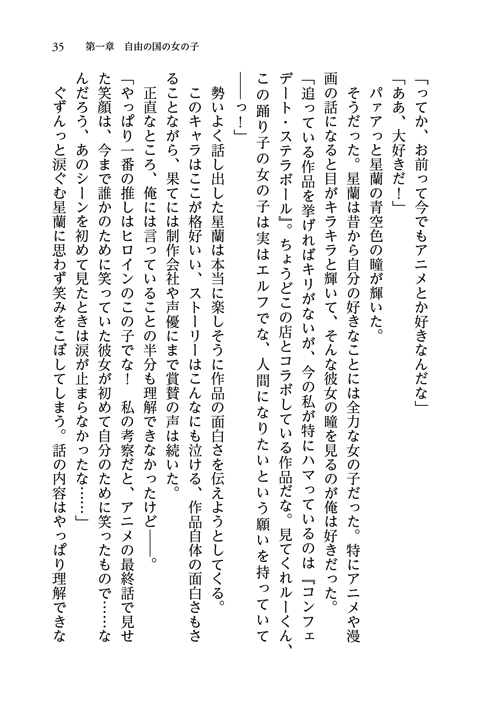 35　第一章　自由の国の女の子
「ってか、お前って今でもアニメとか好きなんだな」
「ああ、大好きだ！」
パァアっと星蘭の青空色の瞳が輝いた。
そうだった。星蘭は昔から自分の好きなことには全力な女の子だった。特にアニメや漫
画の話になると目がキラキラと輝いて、そんな彼女の瞳を見るのが俺は好きだった。
「追っている作品を挙げればキリがないが、今の私が特にハマっているのは『コンフェ
デート・ステラボール』。ちょうどこの店とコラボしている作品だな。見てくれルーくん、
この踊り子の女の子は実はエルフでな、人間になりたいという願いを持っていて
――っ！」
勢いよく話し出した星蘭は本当に楽しそうに作品の面白さを伝えようとしてくる。
このキャラはここが格好いい、ストーリーはこんなにも泣ける、作品自体の面白さもさ
ることながら、果てには制作会社や声優にまで賞賛の声は続いた。
正直なところ、俺には言っていることの半分も理解できなかったけど――。
「やっぱり一番の推しはヒロインのこの子でな！　私の考察だと、アニメの最終話で見せ
た笑顔は、今まで誰かのために笑っていた彼女が初めて自分のために笑ったもので……な
んだろう、あのシーンを初めて見たときは涙が止まらなかったな……」
ぐずんっと涙ぐむ星蘭に思わず笑みをこぼしてしまう。話の内容はやっぱり理解できな